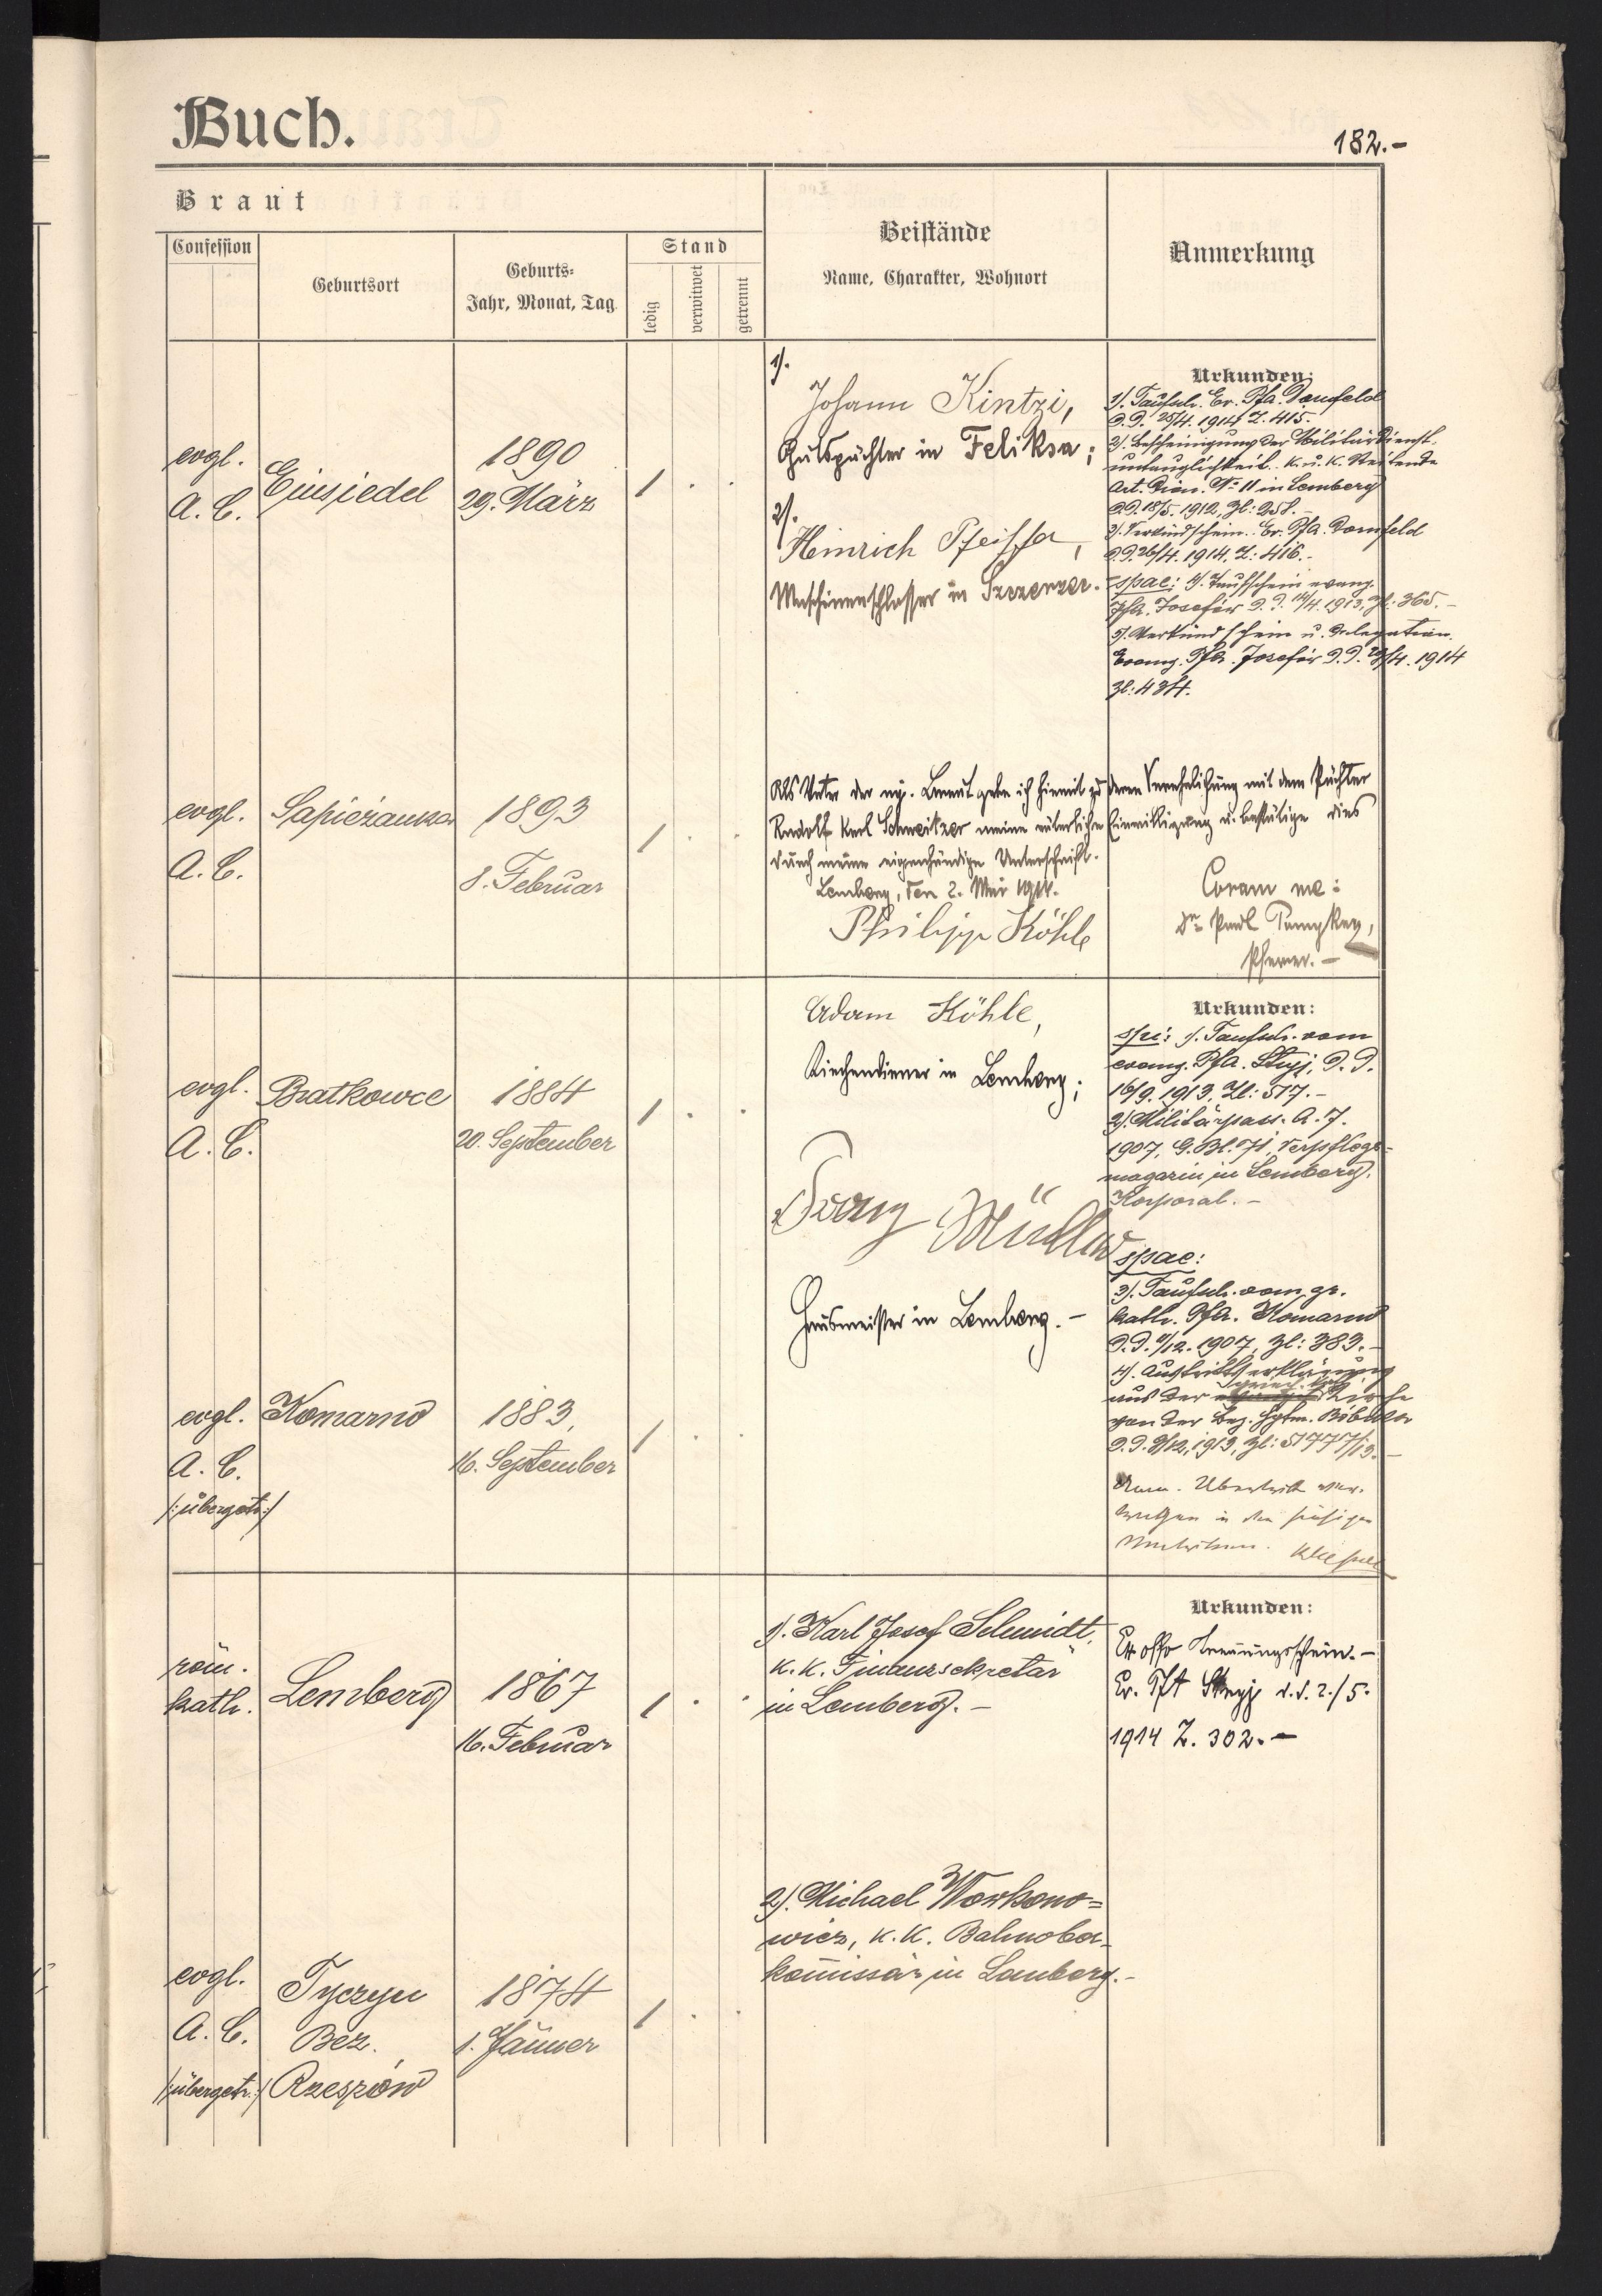 Buch.
182.-
Braut
Confession
Geburtsort
Geburts-
Jahr, Monat, Tag
Stand
ledig
verwitwet
getrennt
Beistände
Name, Charakter, Wohnort
Anmerkung
evgl.
A. C.
Einsiedel
1890
29. März
1 . .
1).
Johann Kintzi,
Gutspächter in Feliksa;
2).
Heinrich Pfeiffer,
Maschinenschlosser in Szczerzec.
Urkunden:
1). Taufsch. Ev. Pfa. Dornfeld
d.d. 25/4. 1914 Z. 415.
2). Bescheinigung der Militärdienst-
untauglichkeit. K. u. K. Reitende
Art. Dion. No 11 in Lemberg
d.d. 18/5. 1912, Zl: 258.-
3). Verkündschein. Ev. Pfa. Dornfeld
d.d. 26/4. 1914. Z: 416.-
spae: 4). Taufschein evang.
Pfa. Josefów d.d. 14/4. 1913, Zl: 365.-
5). Verkündschein u. Delegation.
Evang. Pfa. Josefów d.d. 29/4. 1914
Zl: 434.
evgl.
A. C.
Sapieżanka
1893
8. Februar
1 . .
Als Vater der mj. Braut gebe ich hiemit zu deren Verehelichung mit dem Pächter
Rudolf Karl Schweitzer meine väterliche Einwilligung u. bestätige dies
durch meine eigenhändige Unterschrift.
Lemberg, den 2. Mai 1914.
Philipp Köhle
Coram me:
Dr. Paul
Pfarrer.-
evgl.
A. C.
Bratkowce
1884
20. September
1 . .
Adam Köhle,
Kirchendiener in Lemberg;
Franz Müller
Hausmeister in Lemberg.-
Urkunden:
spi: 1). Taufsch. vom
evang. Pfa. Stryj, d.d.
16/9. 1913, Zl: 517.-
2). Militärpass. A. J.
1907, G. Bl. 71, Verpflegs-
magazin in Lemberg.
Korporal.-
spae:
3). Taufsch. vom gr.
kath. Pfa. Komarno
d.d. 9/12. 1907, Zl: 383.-
4). Austrittserklärung
aus der Kirche
von der Bez. Hptm. Bóbrka
d.d. 9/12, 1913, Zl: 51777/13.-
evgl.
A. C.
/:übergetr:/
Komarno
1883,
16. September
1 . .
Anm. Übertritt
in den hiesigen
röm.
kath.
Lemberg
1867
16. Februar
1 . .
1). Karl Josef Schmidt,
k. k. Finanzsekretär
in Lemberg.-
Urkunden:
Ex offo Trauungsschein.-
Ev. Pfa Stryj d. d. 2./5.
1914 Z. 302.-
2). Michael Workono=
wicz, k. k. Bahnober-
kommissär in Lemberg.-
evgl.
A. C.
/:übergetr.:/
Tyczyn
Bez.
Rzeszów
1874
1. Jänner
1 . .